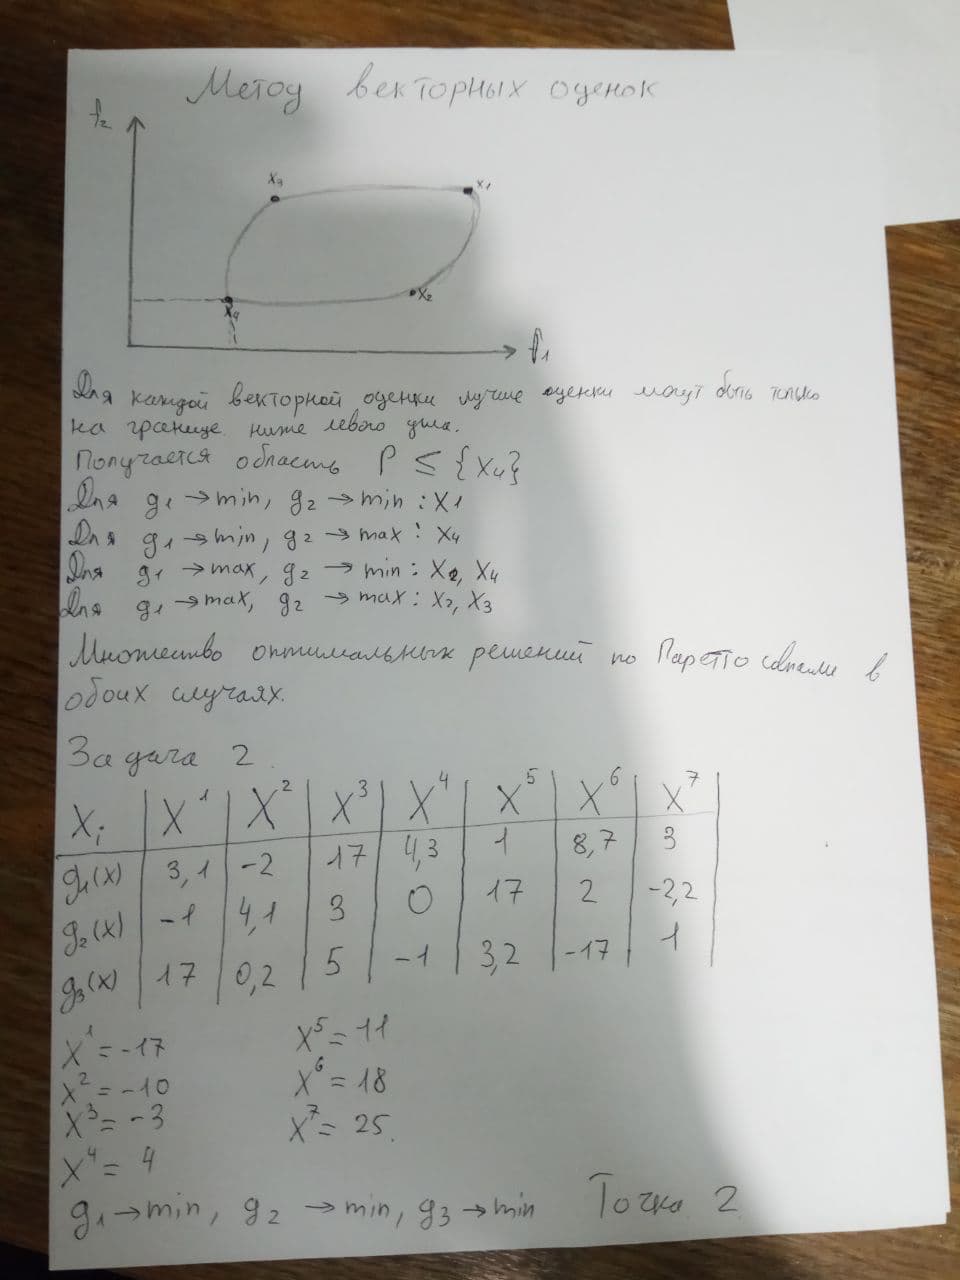 Метод векторных оценок
f₂
x₃
x₁
x₂
x₄
f₁
Для каждой векторной оценки лучше оценки могут быть только
на границе ниже левого угла.
Получается область P ≤ {x₄}
Для g₁ → min, g₂ → min : x₁
Для g₁ → min, g₂ → max : x₄
Для g₁ → max, g₂ → min : x₂, x₄
Для g₁ → max, g₂ → max : x₂, x₃
Множество оптимальных решений по Паретто совпали в
обоих случаях.
Задача 2
Xᵢ | X¹ | X² | X³ | X⁴ | X⁵ | X⁶ | X⁷
g₁(x) | 3,1 | -2 | 17 | 4,3 | 1 | 8,7 | 3
g₂(x) | -1 | 4,1 | 3 | 0 | 17 | 2 | -2,2
g₃(x) | 17 | 0,2 | 5 | -1 | 3,2 | -17 | 1
x¹ = -17
x² = -10
x³ = -3
x⁴ = 4
x⁵ = 11
x⁶ = 18
x⁷ = 25.
g₁ → min, g₂ → min, g₃ → min Точка 2